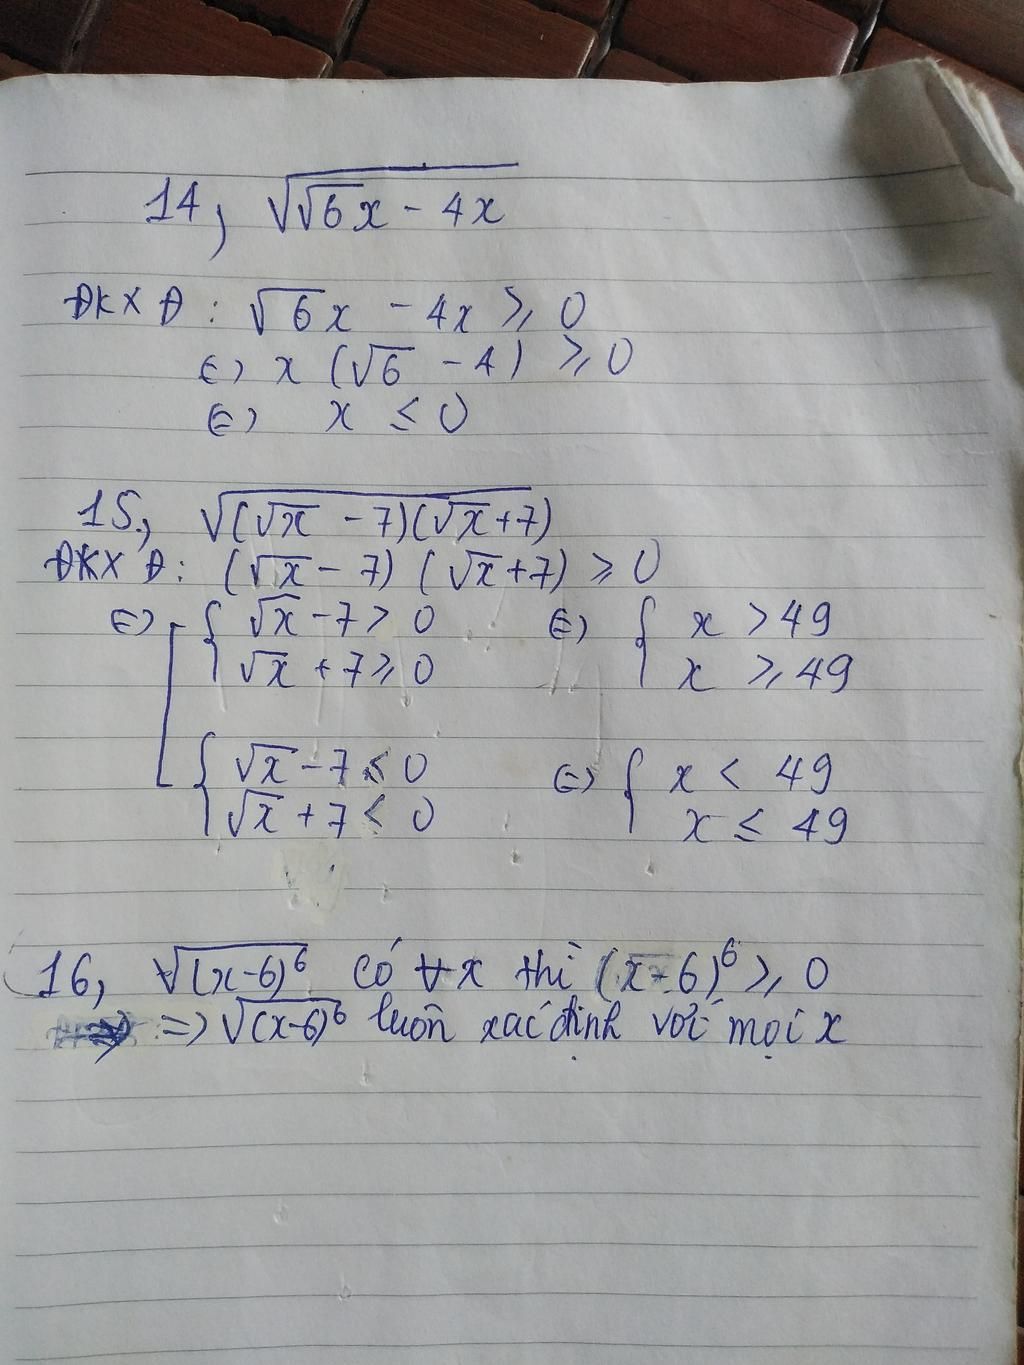 14, √(√6x - 4x)
ĐKXĐ: √6x - 4x ≥ 0
⇔ x (√6 - 4) ≥ 0
⇔ x ≤ 0
15, √((√x - 7)(√x + 7))
ĐKXĐ: (√x - 7) (√x + 7) ≥ 0
⇔ [ { √x - 7 > 0 ⇔ { x > 49
√x + 7 ≥ 0 x ≥ 49
{ √x - 7 ≤ 0 ⇔ { x < 49
√x + 7 ≤ 0 x ≤ 49
16, √(x-6)⁶ có ∀x thì (x-6)⁶ ≥ 0
=> √(x-6)⁶ luôn xác định với mọi x